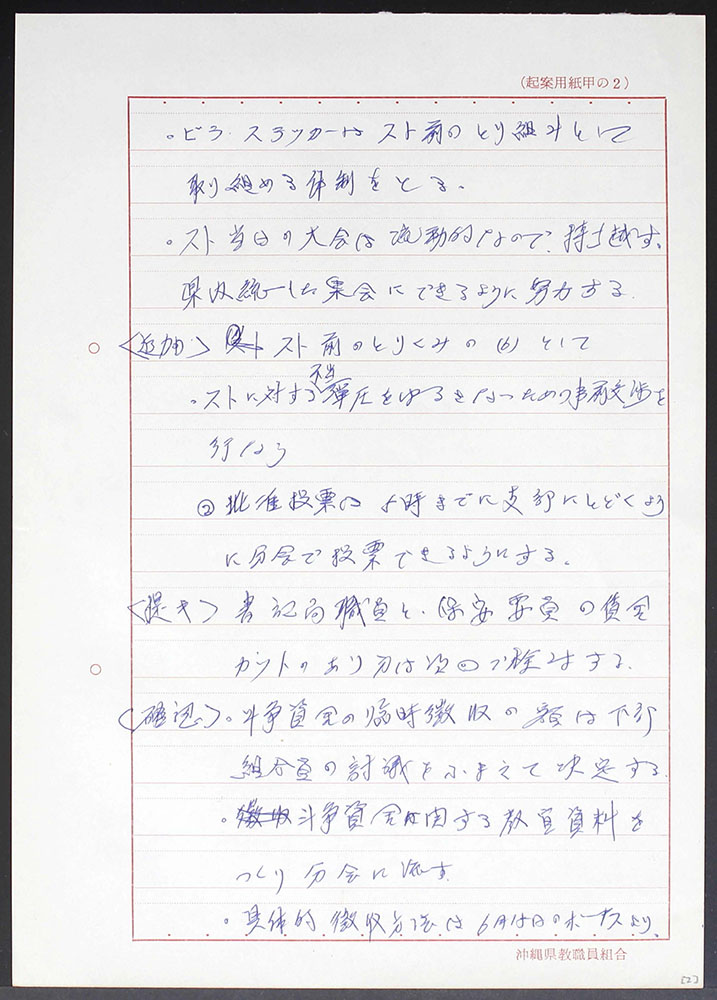 (起案用紙甲の2)
。ビラ.ステッカーは スト前のとり組みとして
取り組める体制をとる。
。スト当日の大会は流動的なので、持ち越す。
県内統一した集会にできるように努力する.
〈追加〉 スト前のとりくみの(6)として
不当
。ストに対する弾圧をゆるさないための事前交渉を
行なう
② 批准投票は 5時までに支部にとどくよう
に分会で投票できるようにする。
書記局職員と、保安要員の賃金
カットのあり方は次回で検討する.
〈確認〉。斗争資金の臨時徴収の額は下部
組合員の討議をふまえて決定する.
。斗争資金に関する教宣資料を
つくり分会に流す
。具体的徴収方法は6月15日のボーナスより.
沖縄県教職員組合
[2]